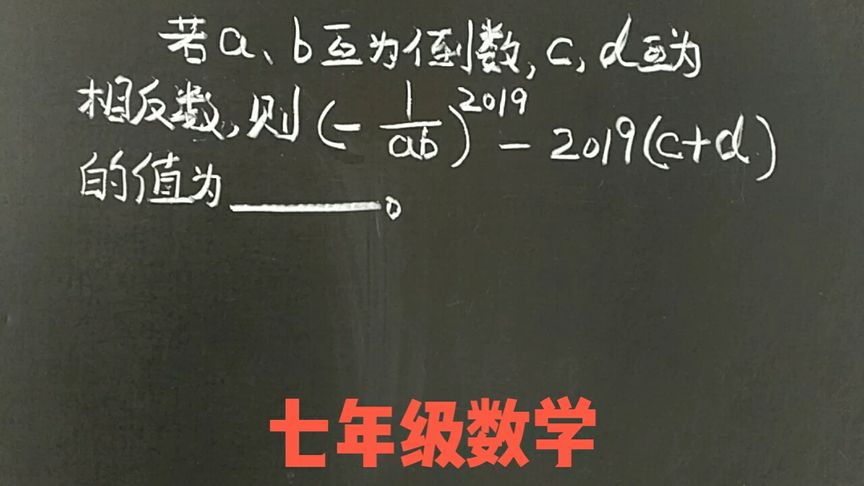 若a、b互为倒数,c,d互为
相反数,则(-1/ab)^2019-2019(c+d)
的值为______。
七年级数学